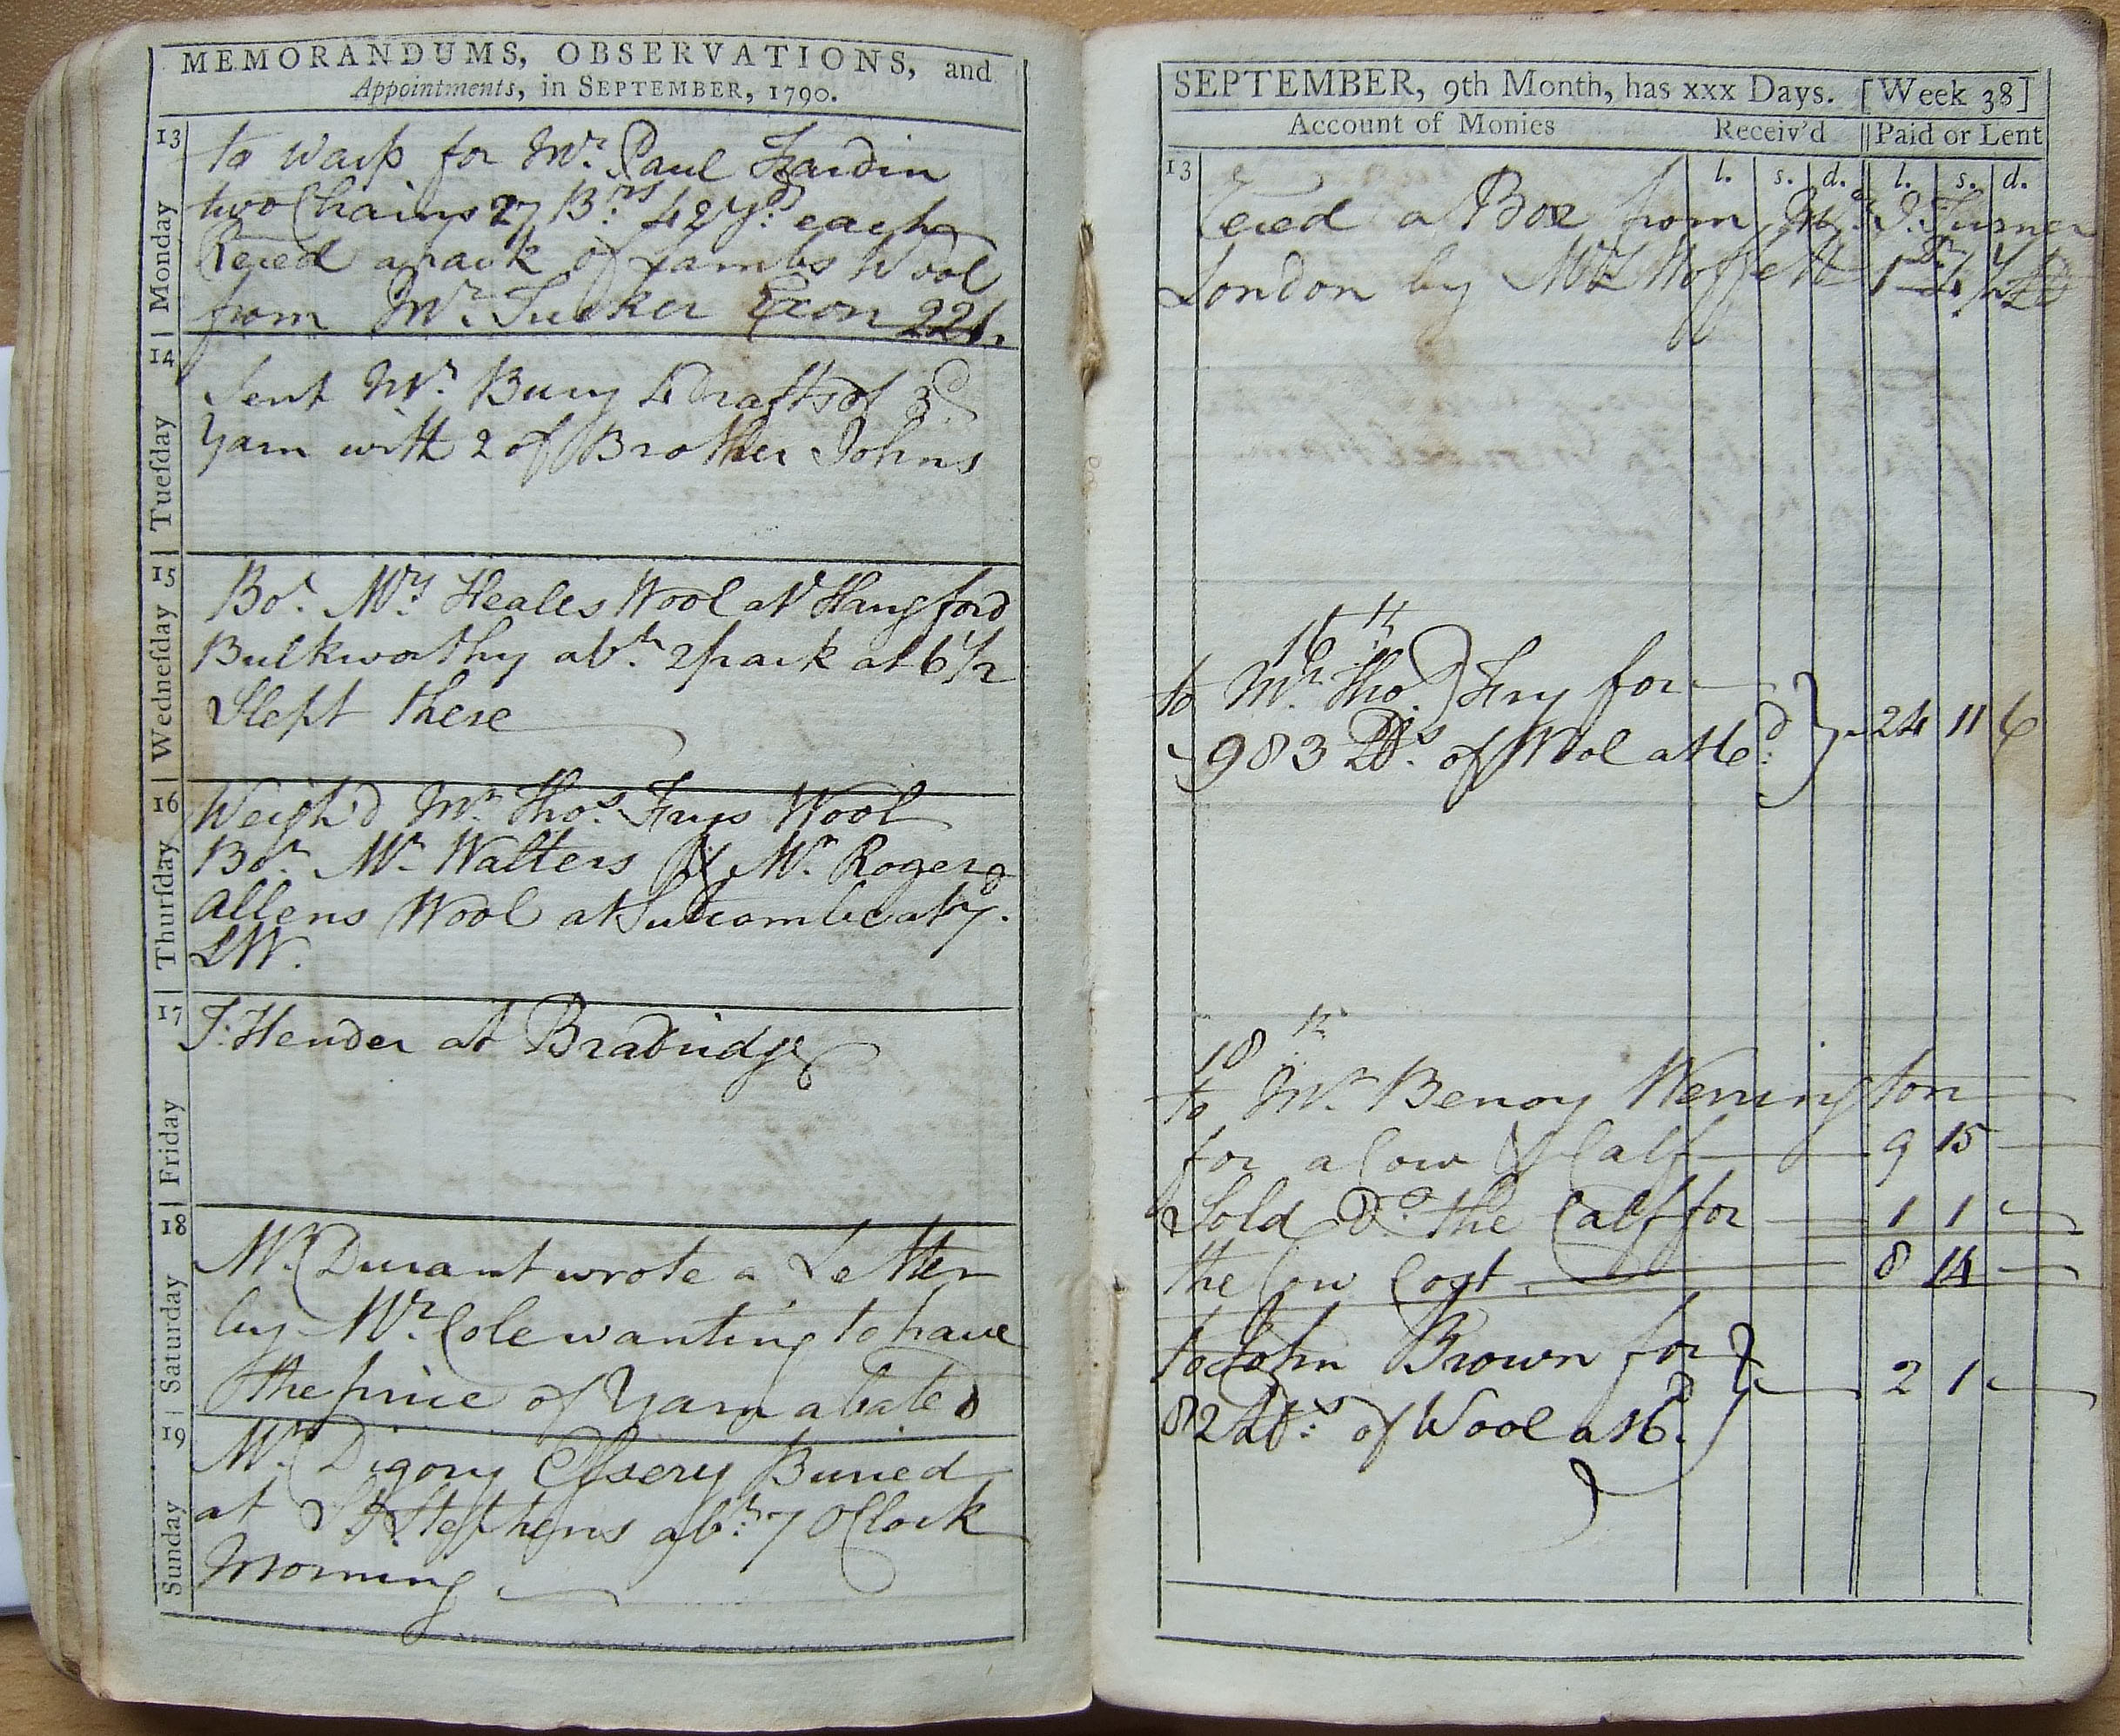 MEMORANDUMS, OBSERVATIONS, and
Appointments, in SEPTEMBER, 1790.
13 Monday
to Warp for Mr. Paul Jardin
two Chains 27 Brs. 42 Yd. each
Reced a pack of Lambs Wool
from Mr. Tucker Exon
14 Tueſday
Sent Mr. Bury 4 Drafts of 3d.
Yarn with 2 of Brother Johns
15 Wedneſday
Bot. Mrs. Heales Wool at Hangford
Bulkworthy abt. 2 pack at 6 1/2
Slept there
16 Thurſday
Weigh'd Mr. Thos. Frys Wool
Bot. Mr. Walters & Mr. Roger
Allens Wool at Sutcombe at 7d.
LW.
17 Friday
J. Hender at Bradridge
18 Saturday
Mr. Durant wrote a Letter
by Mr. Cole wanting to have
the price of Yarn abated
19 Sunday
Mr. Digory Eſsery Buried
at St. Stephens abt. 7 OClock
Morning
SEPTEMBER, 9th Month, has xxx Days. [Week 38]
Account of Monies Receiv'd Paid or Lent
13 l. s. d. l. s. d.
Reced a Box from Mr. J. Turner
London by Mrs. Moffett
16th
to Mr. Thos. Fry for
983 lbs. of Wool at 6d. } 24 11 6
18th
to Mr. Benoy Werrington
for a Cow & Calf 9 15
Sold Do. the Calf for 1 1
the Cow Cost 8 14
to John Brown for
82 lbs. of Wool at 6d. } 2 1